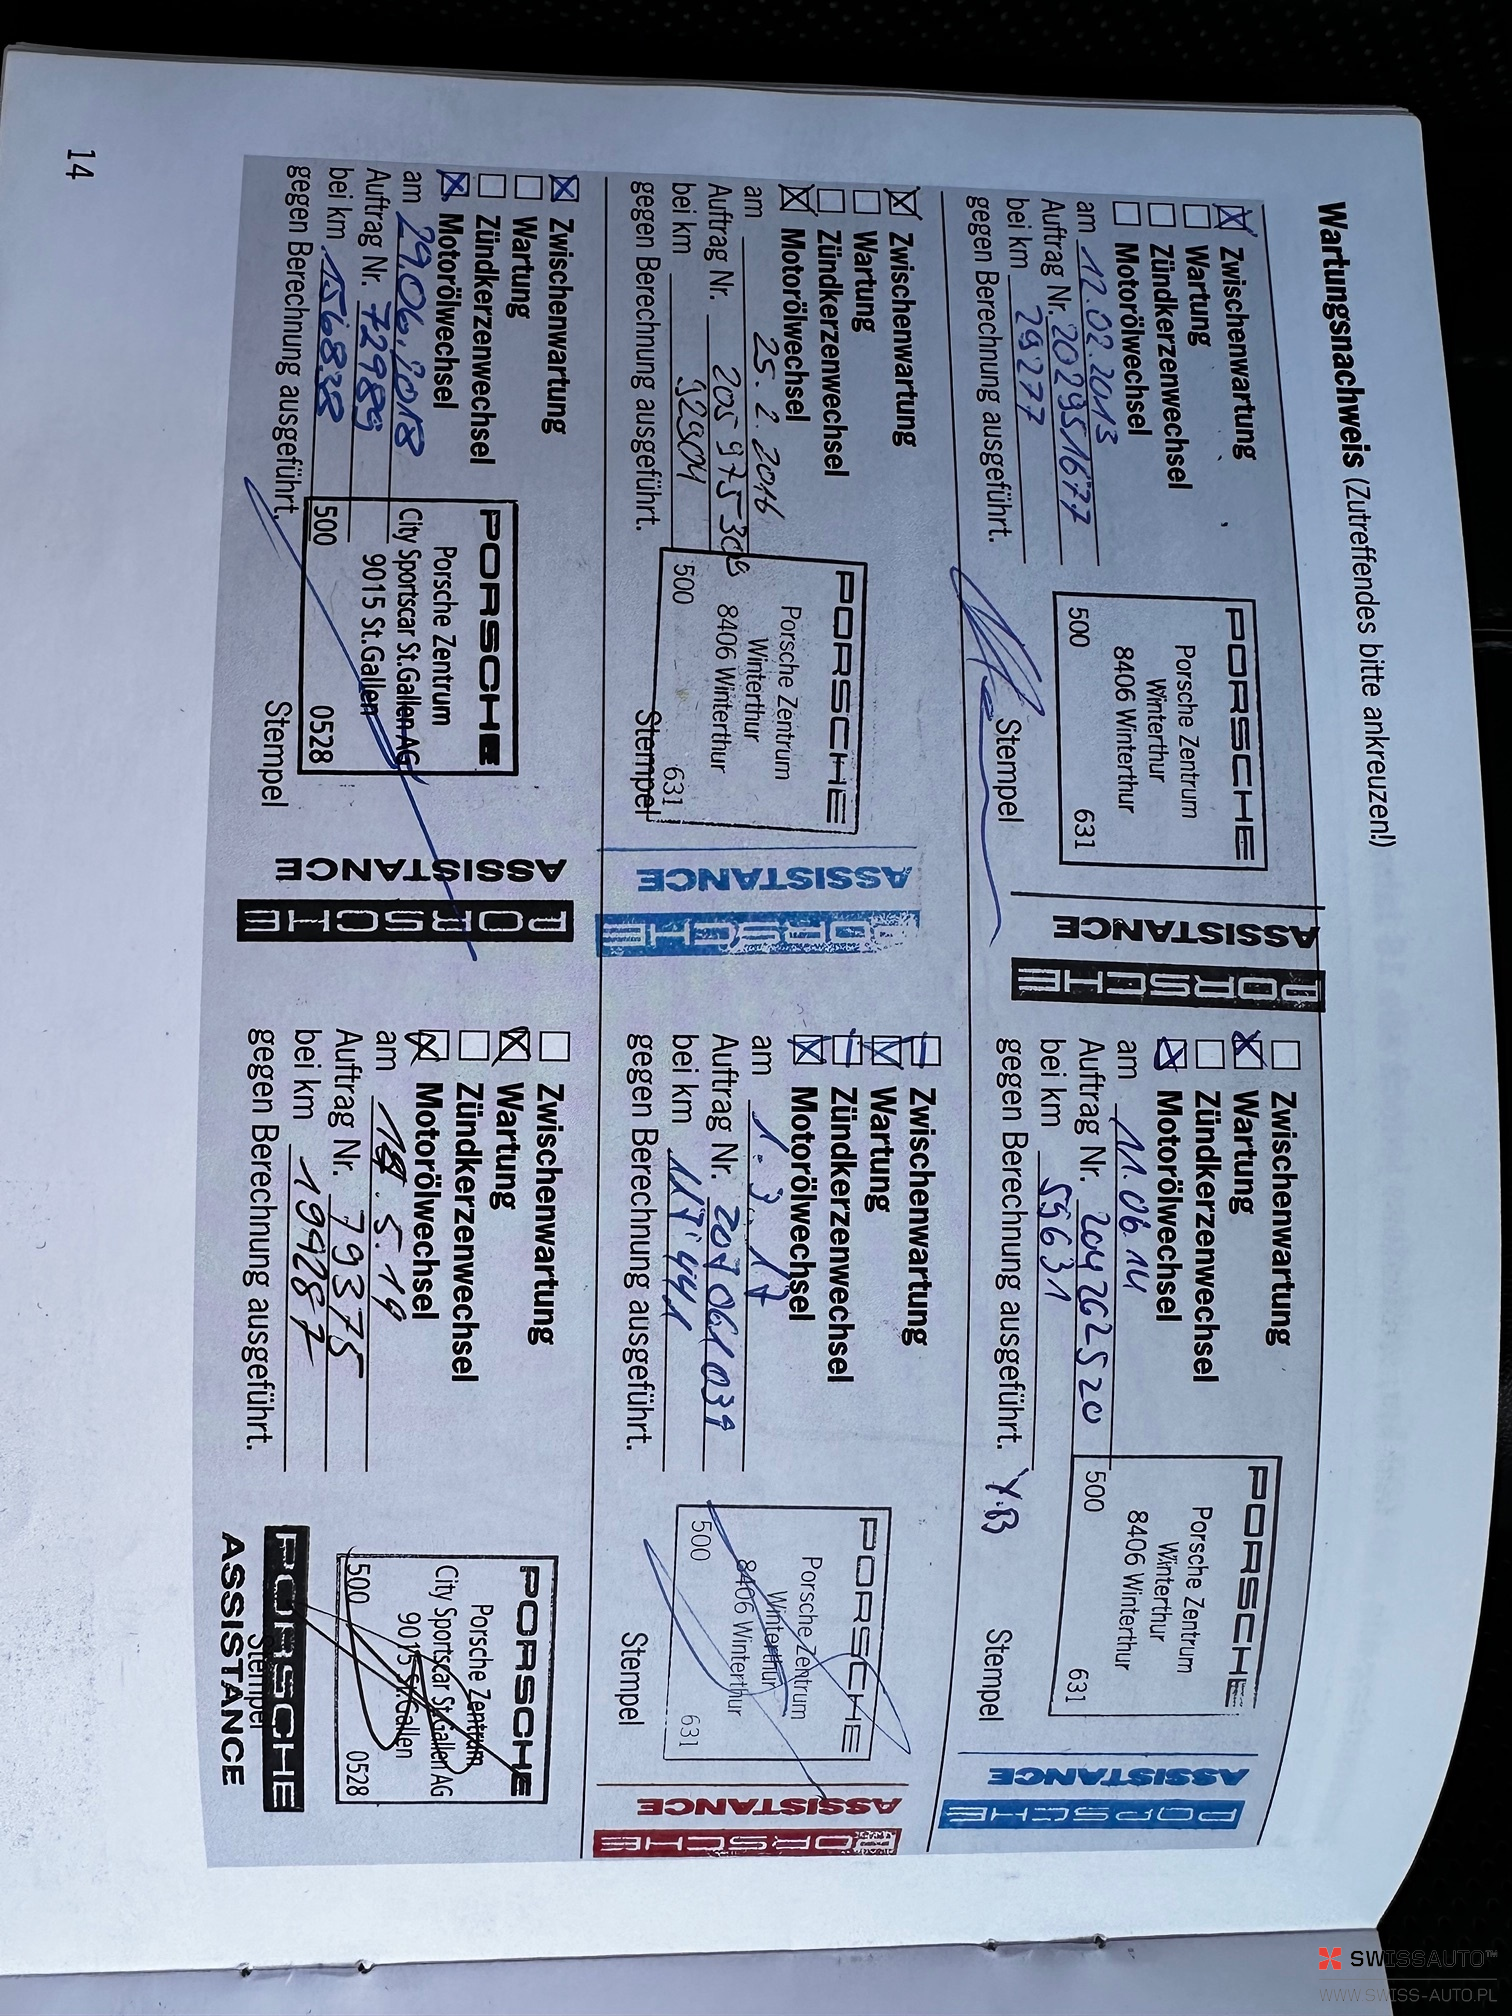 Wartungsnachweis (Zutreffendes bitte ankreuzen!)
Zwischenwartung
Wartung
Zündkerzenwechsel
Motorölwechsel
am 12.02.2013
Auftrag Nr. 202951677
bei km 29277
gegen Berechnung ausgeführt.
PORSCHE
Porsche Zentrum
Winterthur
8406 Winterthur
500 631
Stempel
ASSISTANCE
PORSCHE
Zwischenwartung
Wartung
Zündkerzenwechsel
Motorölwechsel
am 11.06.14
Auftrag Nr. 204262520
bei km 55631
gegen Berechnung ausgeführt. Y.B
PORSCHE
Porsche Zentrum
Winterthur
8406 Winterthur
500 631
Stempel
ASSISTANCE
PORSCHE
Zwischenwartung
Wartung
Zündkerzenwechsel
Motorölwechsel
am 25.2.2016
Auftrag Nr. 205975309
bei km 92904
gegen Berechnung ausgeführt.
PORSCHE
Porsche Zentrum
Winterthur
8406 Winterthur
500 631
Stempel
ASSISTANCE
PORSCHE
Zwischenwartung
Wartung
Zündkerzenwechsel
Motorölwechsel
am 1.3.17
Auftrag Nr. 207061039
bei km 117441
gegen Berechnung ausgeführt.
PORSCHE
Porsche Zentrum
Winterthur
8406 Winterthur
500 631
Stempel
ASSISTANCE
PORSCHE
Zwischenwartung
Wartung
Zündkerzenwechsel
Motorölwechsel
am 29.06.2018
Auftrag Nr. 72989
bei km 156838
gegen Berechnung ausgeführt.
PORSCHE
Porsche Zentrum
City Sportscar St.Gallen AG
9015 St.Gallen
500 0528
Stempel
ASSISTANCE
PORSCHE
Zwischenwartung
Wartung
Zündkerzenwechsel
Motorölwechsel
am 18.5.19
Auftrag Nr. 79375
bei km 199287
gegen Berechnung ausgeführt.
PORSCHE
Porsche Zentrum
City Sportscar St.Gallen AG
9015 St.Gallen
500 0528
Stempel
PORSCHE
ASSISTANCE
14
SWISSAUTO™
WWW.SWISS-AUTO.PL